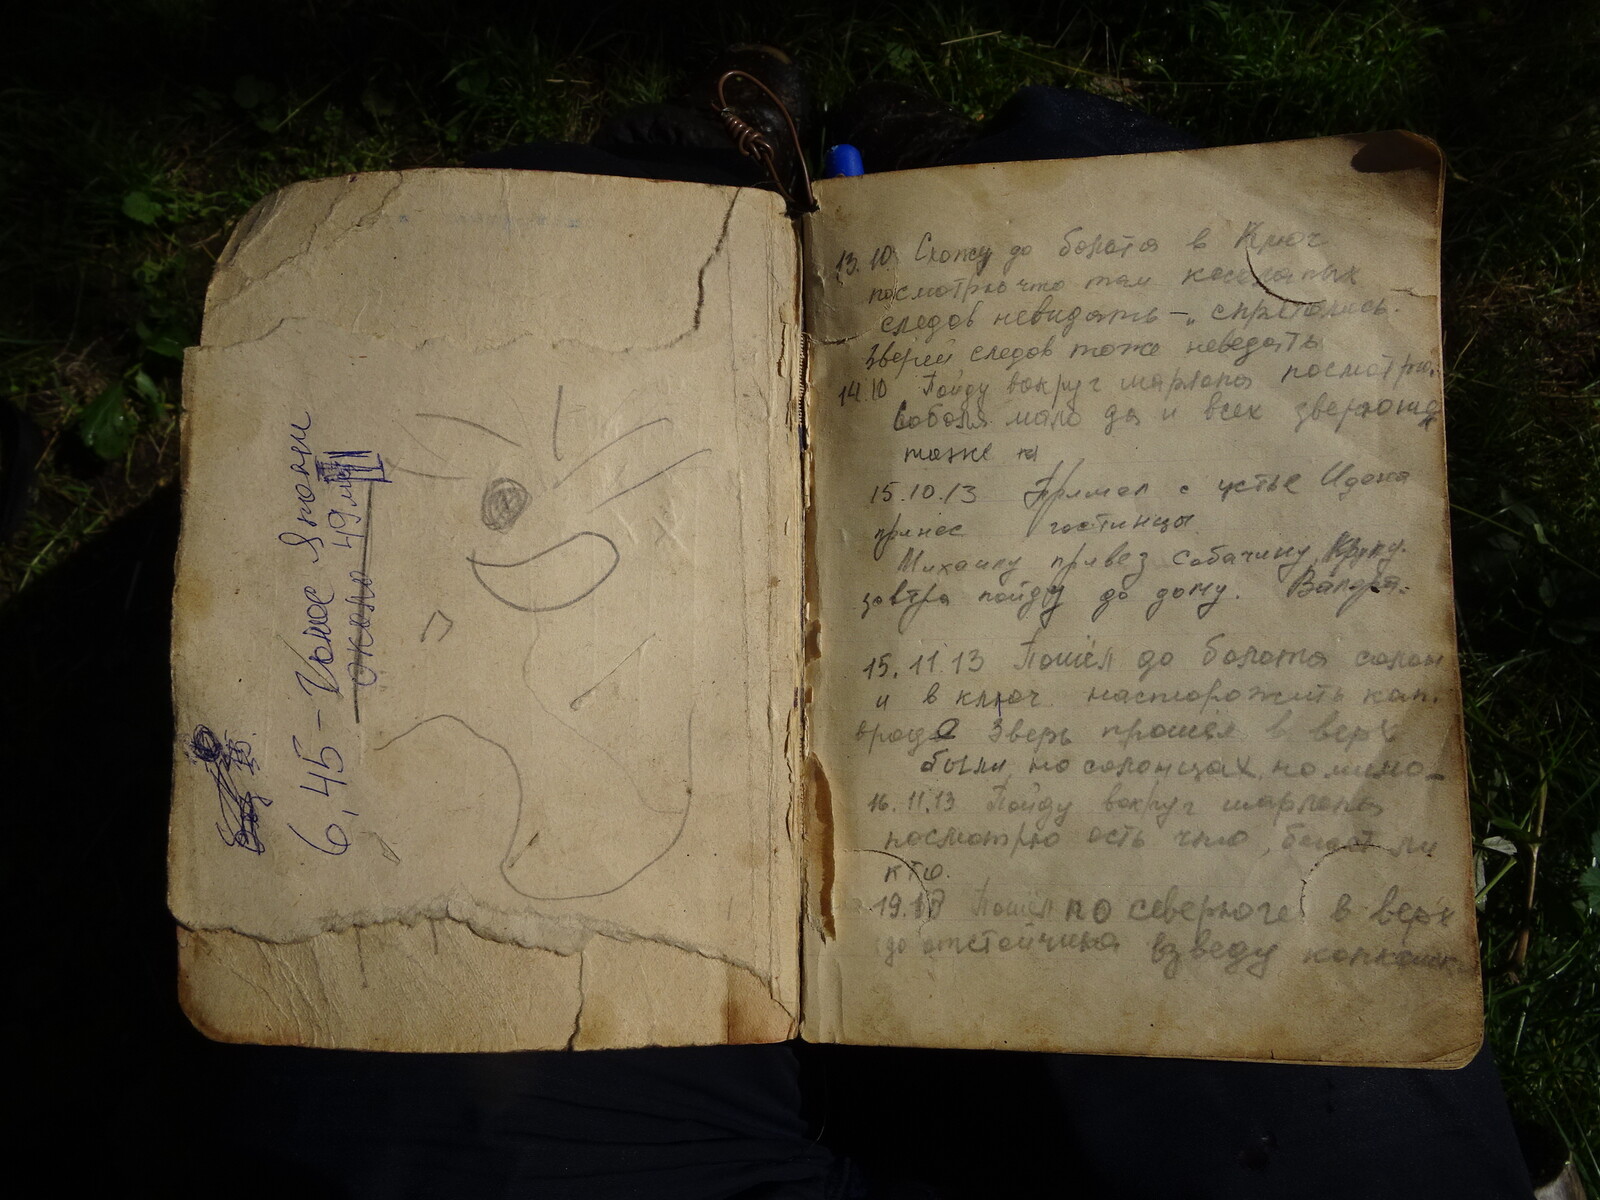 6,45 – Голос Японии
около 49 м
13.10 Схожу до болота в Ключ
посмотрю что там косолапых
следов невидать – спрятались.
Зверей следов тоже неведать
14.10 Пойду вокруг шарлопа посмотрю.
Соболя мало да и всех зверюшек
тоже
15.10.13 Пришёл с устье Идона
принёс гостинцы
Михаилу привёз собачину, Крупу.
завтра пойду до дому. Валера.
15.11.13 Пошёл до болота солон
и в ключ насторожить кап.
вроде Зверь прошёл в верх
были, но солонцах, но мимо–
16.11.13 Пойду вокруг шарлопа
посмотрю есть что, бегает ли
кто.
19.13 Пошёл по северюге в верх
до отстойчика взведу капканы